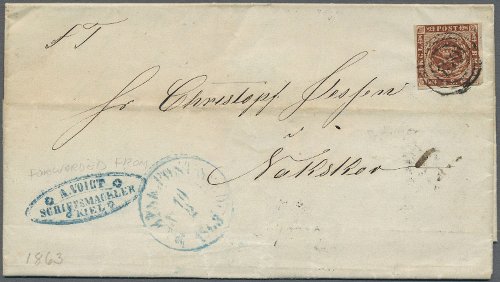 FT
POST
Hr Christoph Jessen
à
Nakskov
FORWARDED FROM
A. VOIGT
SCHIFFSMACKLER
KIEL
19
2
1863